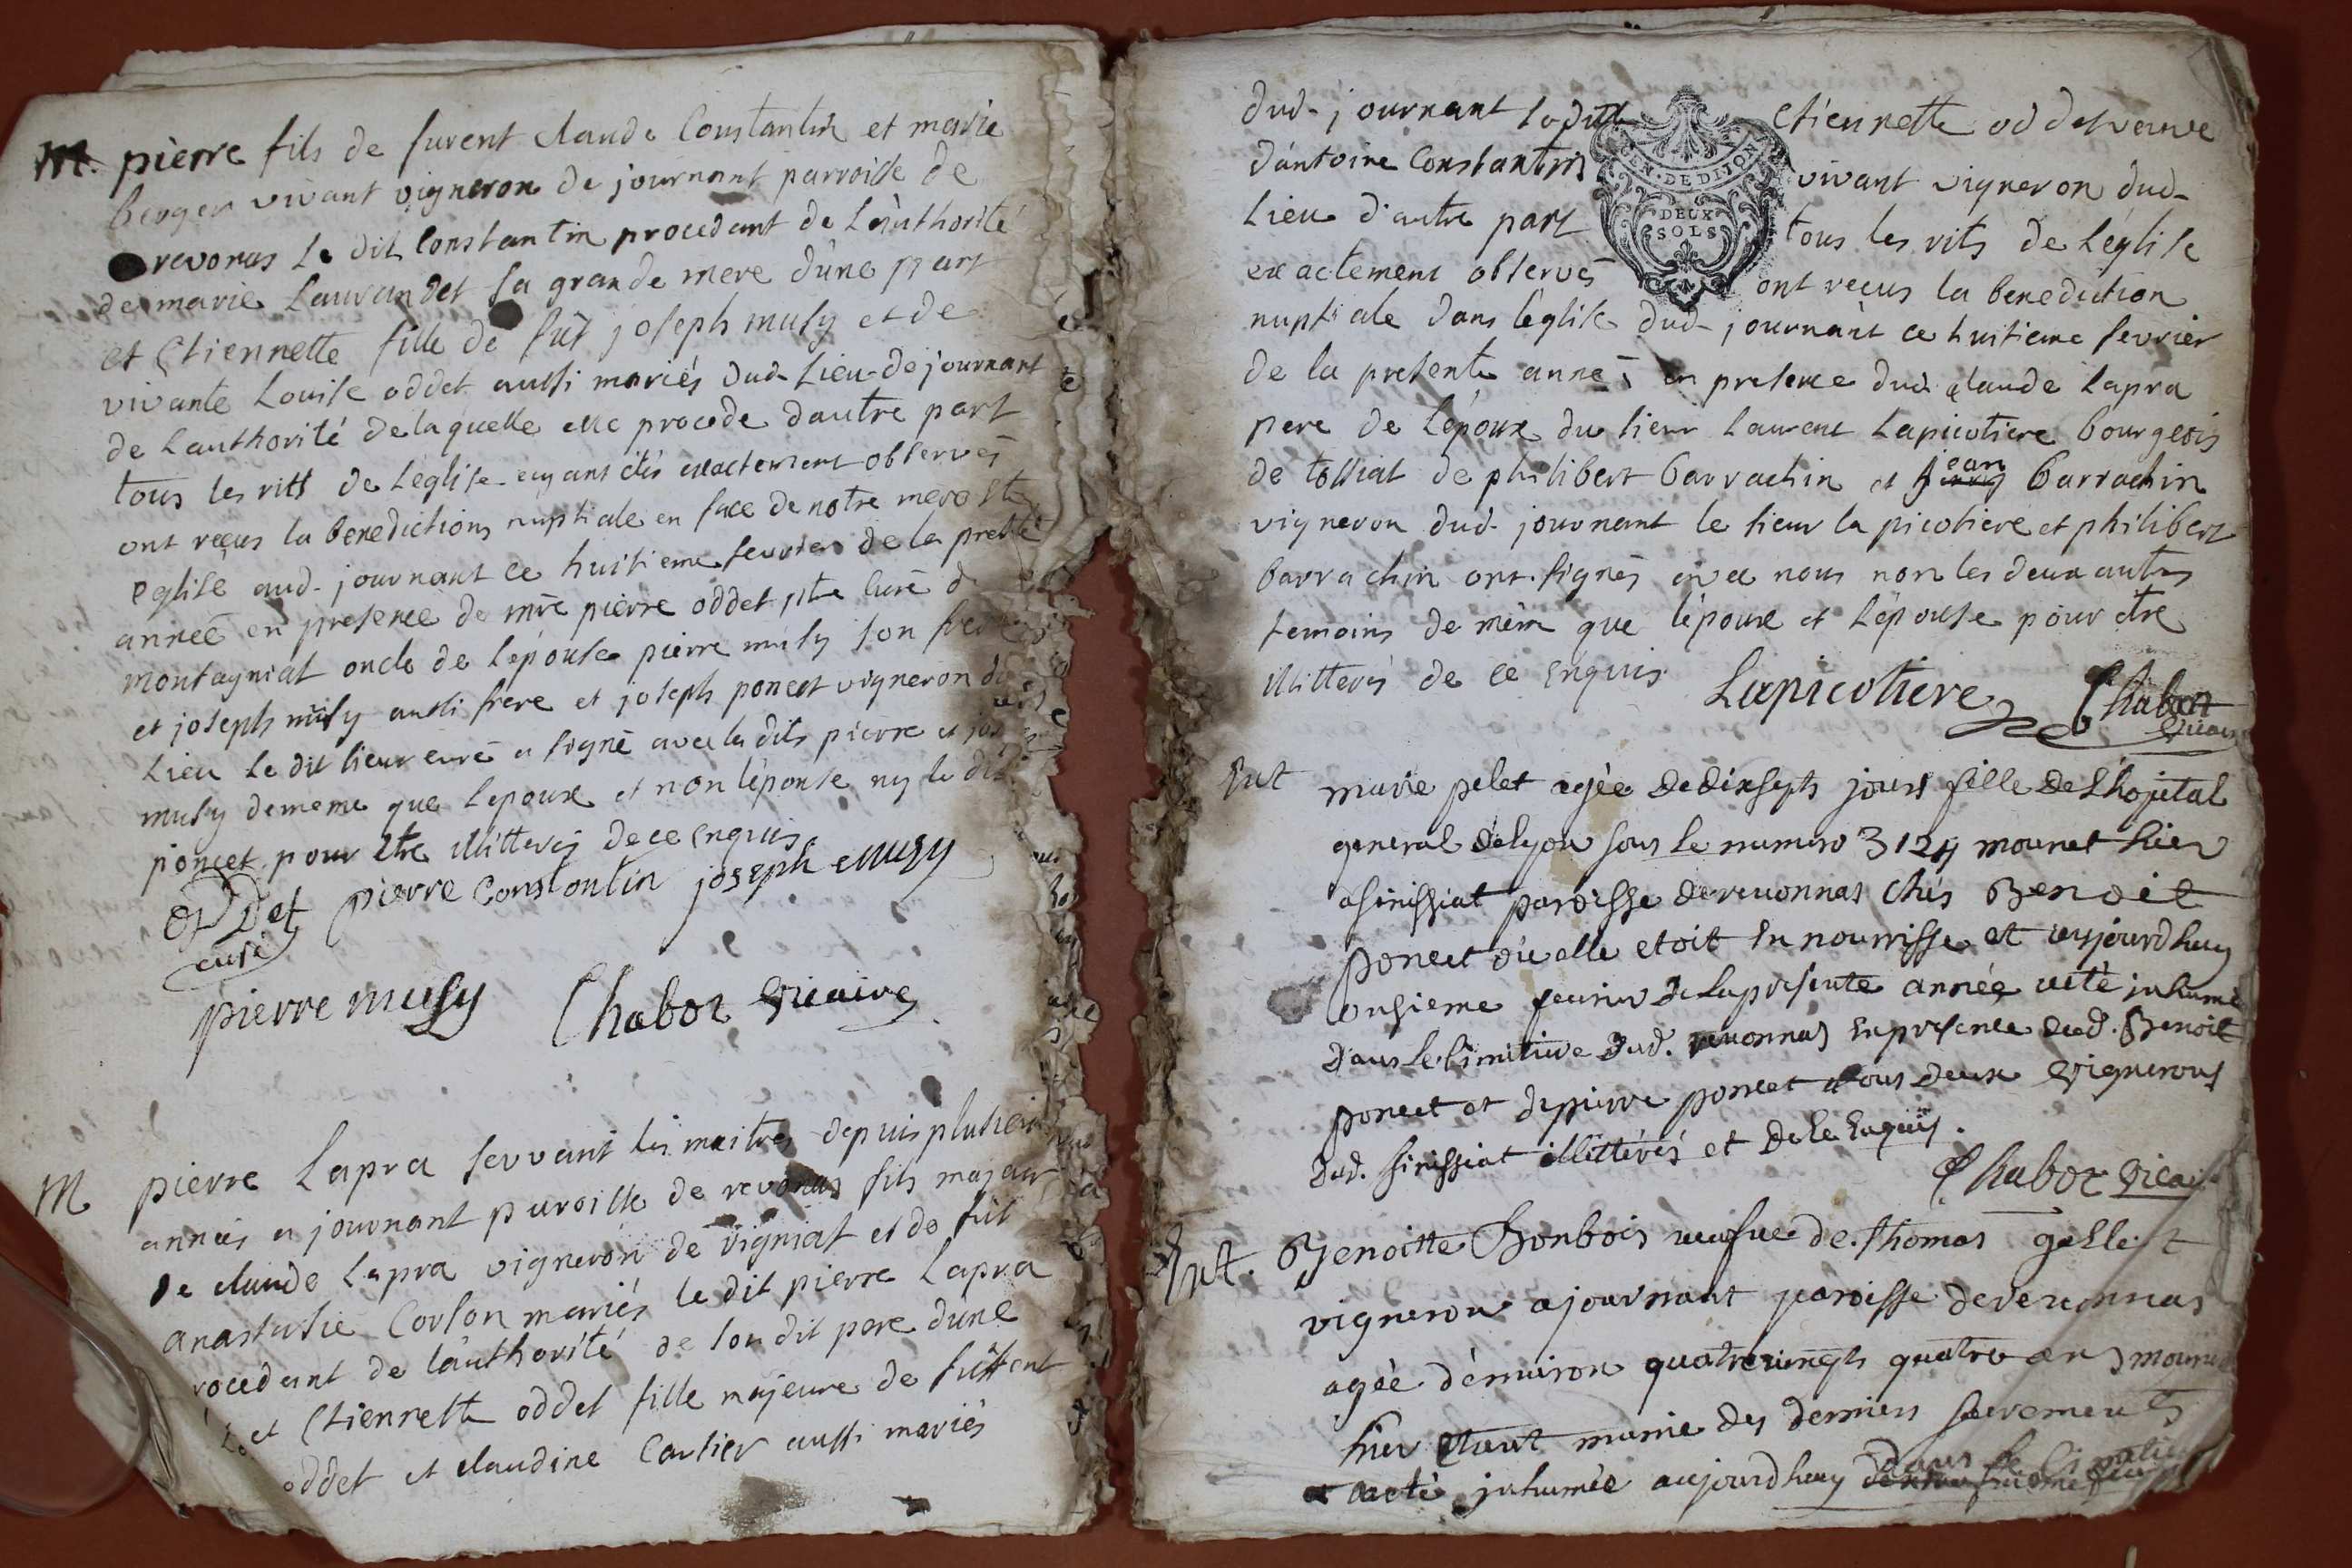 M. pierre fils de furent claude Constantin et marie
berger vivant vigneron de journant parroisse de
revonas le dit Constantin procedant de l'authorité
de marie Laurandet sa grande mere d'une part
et Etiennette fille de fut joseph musy et de
vivante Louise oddet aussi mariés dud. Lieu de journant
de l'authorité de laquelle elle procede d'autre part
tous les rits de l'eglise ayant étés exactement observés
ont reçus la benedictions nuptiale en face de notre mere Ste
eglise aud. journant ce huitieme fevrier de la presle
année en presence de mre pierre oddet ptre curé d
montagniat oncle de l'epouse pierre musy son frere
et joseph musy aussi frere et joseph poncet vigneron du
Lieu le dit sieur curé a signé avec les dits pierre et jos
musy de meme que l'epoux et non l'épouse ny le dit
poncet pour etre illitterés de ce Enquis
Oddet pierre constontin joseph musy
curé
pierre musy Chabot Vicaire
M pierre Lapra servant les maitres depuis plusieurs
années a journant paroisse de revonas fils majeur
de claude Lapra vigneron de vigniat et de fut
anastasie Corson mariés le dit pierre Lapra
rocedant de l'authorité de son dit pere d'une
et Etiennette oddet fille majeure de fussent
oddet et claudine Cartier aussi mariés
dud. journant laditte Etiennette oddet veuve
d'antoine Constantin vivant vigneron dud.
Lieu d'autre part tous les rits de l'église
exactement observés ont reçus la benediction
GEN. DE DIJON
DEUX
SOLS
nuptiale dans l'eglise dud. journant ce huitieme fevrier
de la presente année en presence dud. claude Lapra
pere de l'époux du sieur Laurent Lapicotiere bourgeois
de tossiat de philibert barrachin et jean barrachin
vigneron dud. journant le sieur la picotiere et philibert
barrachin ont signés avec nous non les deux autres
temoins de même que l'époux et l'épouse pour être
illitterés de ce Enquis Lapicotiere Chabot
Vicaire
Ent marie pelet agée de dix sept jours fille de L'hopital
general de lyon sous le numero 3124 mourut hier
a senissiat paroisse de revonnas chés Benoit
poncet où elle etoit en nourrisse et aujourdhuy
onsieme fevrier de la presente année a eté inhumé
dans le cimitiere dud. revonnas en presence dud. Benoit
poncet et de pierre poncet tous deux vignerons
dud. senissiat illittérés et de ce Enquis.
Chabot Vicaire
Ent. Benoitte Bonbois veufve de thomas
vigneron a journant paroisse de revonnas
agée d'environ quatrevingts quatre ans mourut
hier etant munie des derniers sacrements
a eté inhumée aujourdhuy dans le